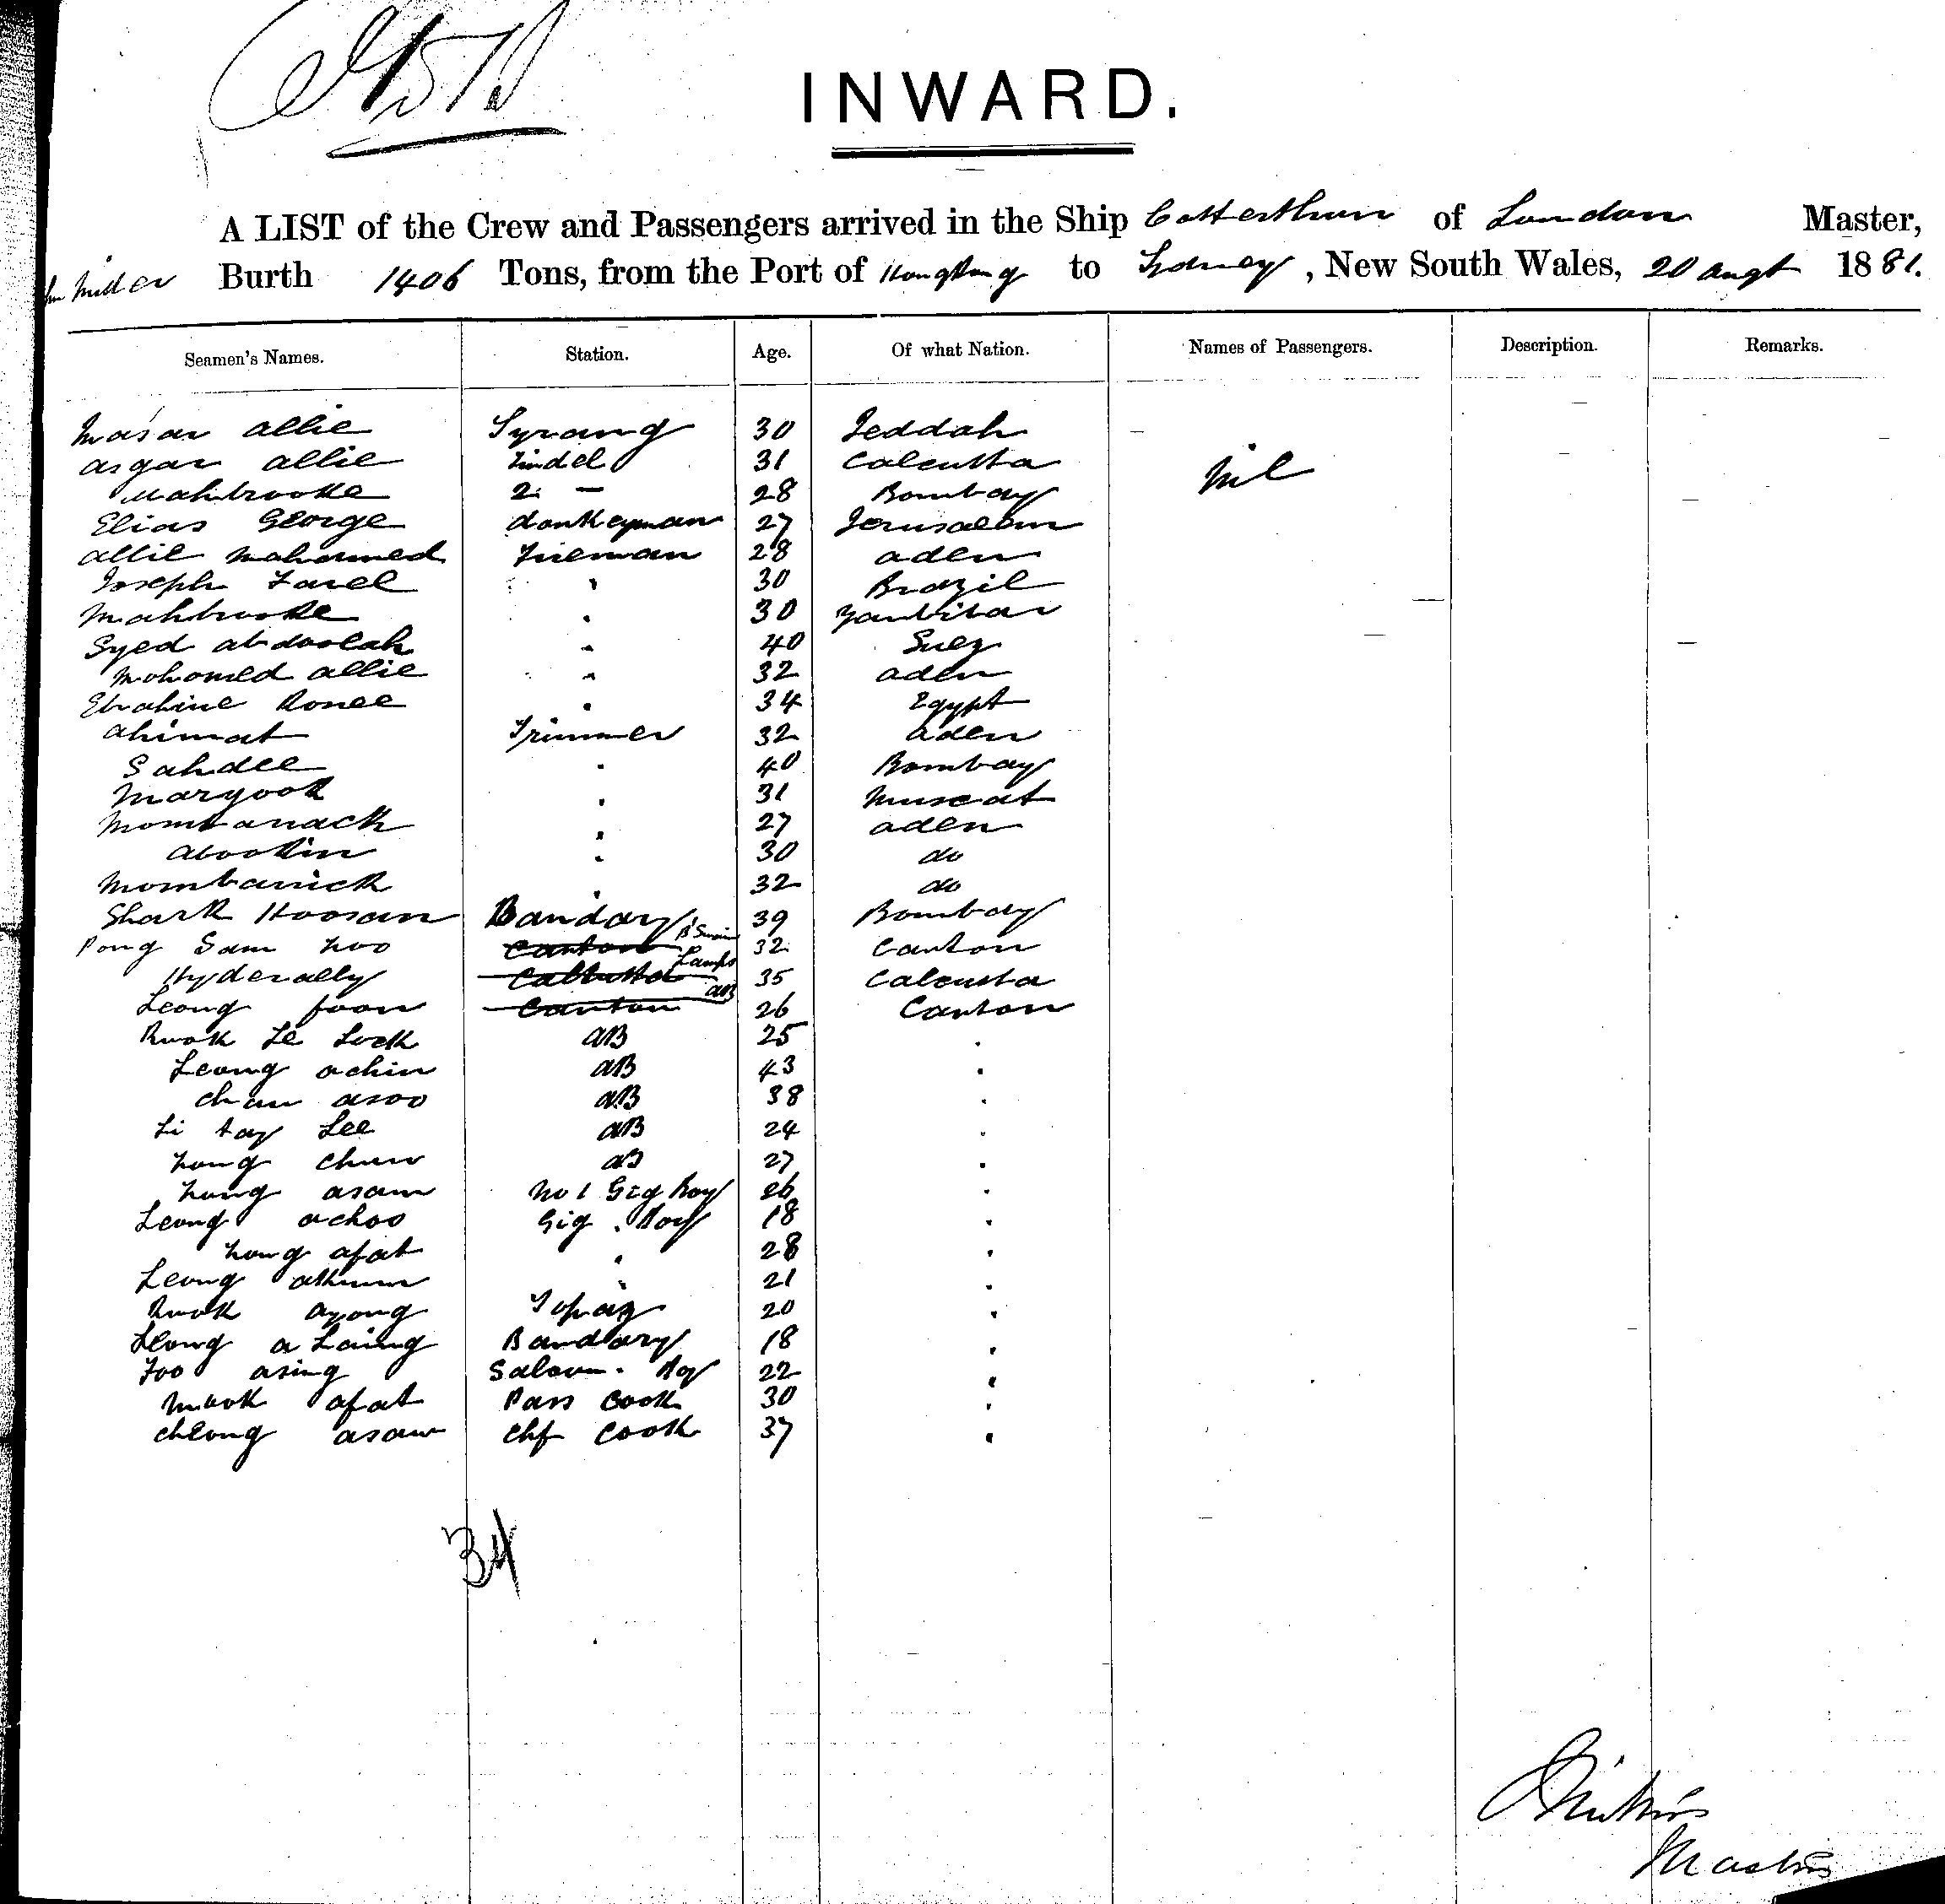 INWARD.
A LIST of the Crew and Passengers arrived in the Ship Catterthun of London Master,
Miller Burth 1406 Tons, from the Port of HongKong to Sydney, New South Wales, 20 Augt 1881.
Seamen's Names. Station. Age. Of what Nation. Names of Passengers. Description. Remarks.
Masar Allie Syrang 30 Jeddah
Asgar Allie Tindel 31 Calcutta nil
Mahbrooke 2 — 28 Bombay
Elias George donkeyman 27 Jerusalem
Allie Mahomed Fireman 28 Aden
Joseph 30 Brazil
Mahbrooke 30 Zanbibar
Syed Abdoolah 40 Suez
Mohomed Allie 32 Aden
Ebrahine 34 Egypt
Ahimat Trimmer 32 Aden
Sahdee 40 Bombay
Margook 31 Muscat
Mombarack 27 Aden
Abookin 30 do
Mombarick 32 do
Shark Hoosan Bandary 39 Bombay
Pong Sam Canton B'Swain 32 Canton
Hyderally Calcutta Lamps 35 Calcutta
Leong foon Canton AB 26 Canton
Kwok Le Lock AB 25
Leong achin AB 43
Chan asoo AB 38
Li tay Lee AB 24
hong Chuw AB 27
hong asam No 1 Gig Boy 26
Leong achoo Gig Boy 18
hong afat 28
Leong 21
Kwok ayong Topaz 20
Leong a Laing Bandary 18
Foo asing Saloon Boy 22
afat Pass Cook 30
Cheong asaw Chf Cook 37
34
Master